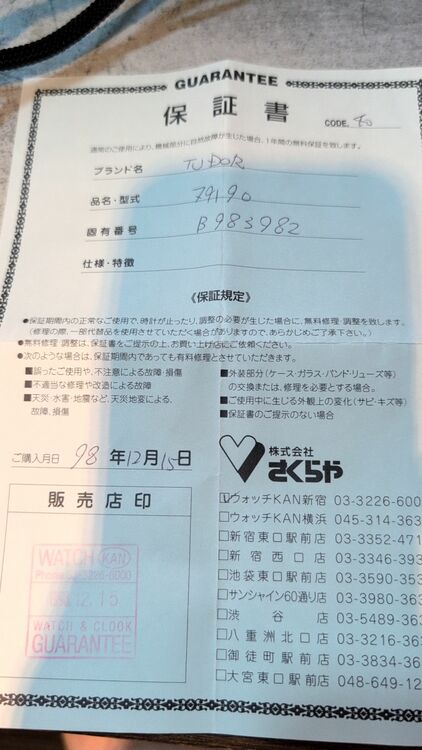 GUARANTEE
保証書
CODE.
通常のご使用により、機械部分に自然故障が生じた場合、1年間の無料保証を致します。
ブランド名 TUDOR
品名・型式 79190
固有番号 B983982
仕様・特徴
《保証規定》
●保証期間内の正常なご使用で、時計が止ったり、調整の必要が生じた場合に、無料修理・調整を致します。
(修理の際、一部代替品を使用させていただく場合がありますので、あらかじめご了承下さい。)
●無料修理、調整は、保証書をご提示の上、お買い上げ店にご依頼ください。
●次のような場合は、保証期間内であっても有料修理とさせていただきます。
■誤ったご使用や、不注意による故障・損傷
■不適当な修理や改造による故障
■天災・水害・地震など、天災地変による、
故障、損傷
■外装部分(ケース・ガラス・バンド・リューズ等)
の交換または、修理を必要とする場合。
■ご使用中に生じる外観上の変化(サビ・キズ等)
■保証書のご提示のない場合
ご購入月日 98年12月15日
株式会社
さくらや
販売店印
WATCH KAN
Phone 03-3226-6000
12.15
WATCH & CLOCK
GUARANTEE
ウォッチKAN新宿 03-3226-600
ウォッチKAN横浜 045-314-363
新宿東口駅前店 03-3352-471
新宿西口店 03-3346-393
池袋東口駅前店 03-3590-353
サンシャイン60通り店 03-3980-363
渋谷店 03-5489-363
八重洲北口店 03-3216-363
御徒町駅前店 03-3834-36
大宮東口駅前店 048-649-12